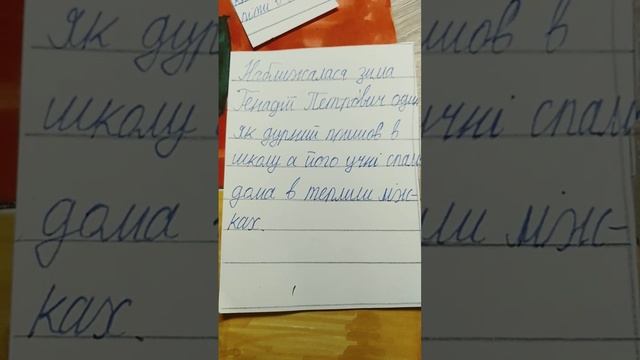 Наближалася зима
Генадій Петрович один
як дурний пішов в
школу а його учні спали
дома в теплили ліж-
ках.